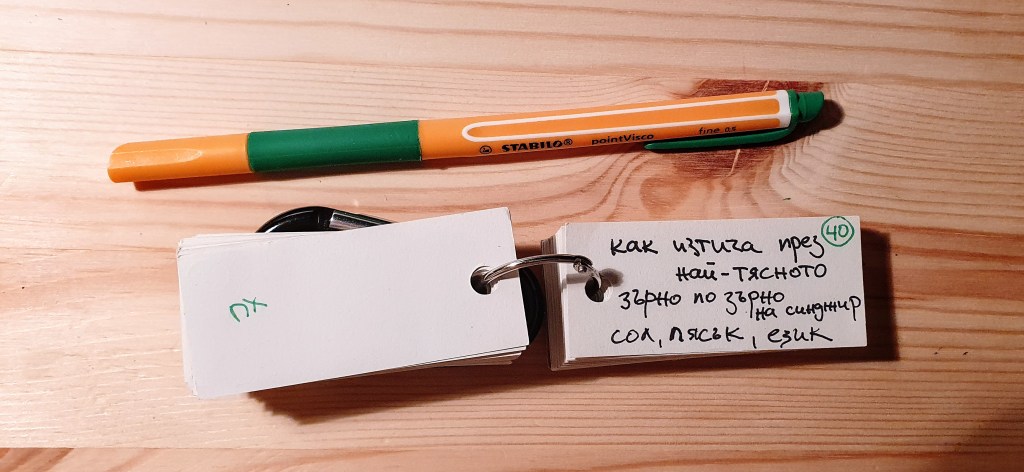 STABILO® pointVisco fine 0.5
пх
40
как изтича през
най-тясното
зърно по зърно
на синджир
сол, пясък, език